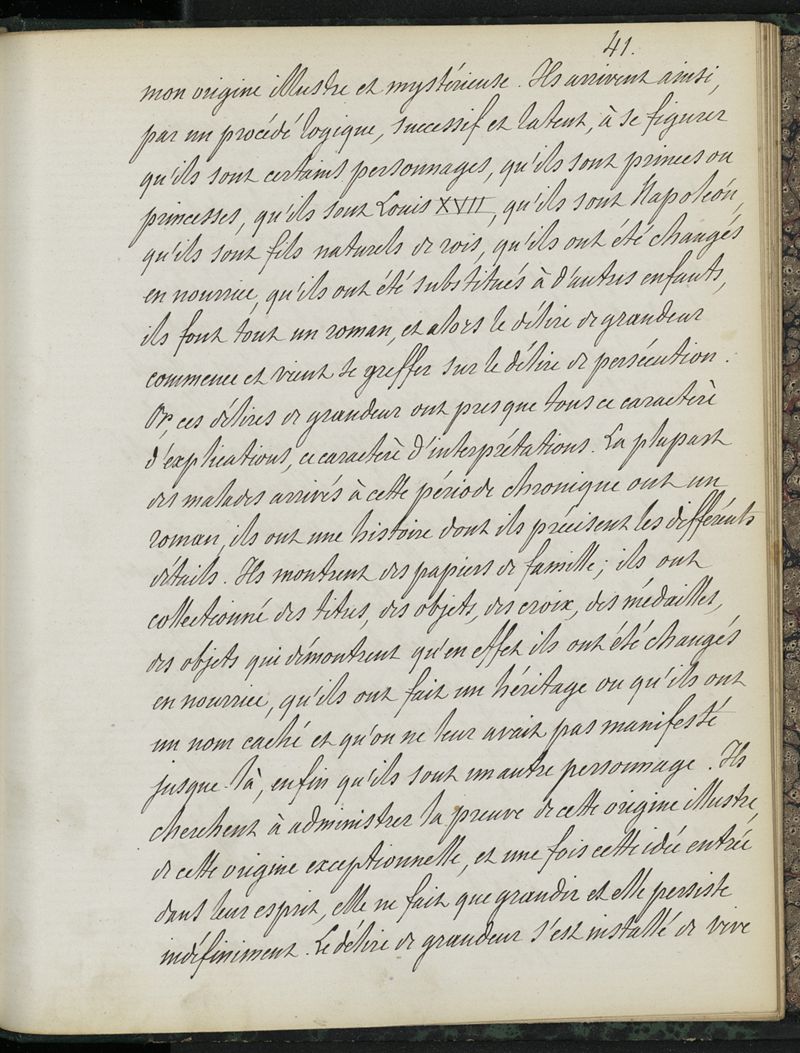 41.
mon origine illustre et mystérieuse. Ils arrivent ainsi,
par un procédé logique, successif et latent, à se figurer
qu'ils sont certains personnages, qu'ils sont princes ou
princesses, qu'ils sont Louis XVII, qu'ils sont Napoléon,
qu'ils sont fils naturels de rois, qu'ils ont été changés
en nourrice, qu'ils ont été substitués à d'autres enfants,
ils font tout un roman, et alors le délire de grandeur
commence et vient se greffer sur le délire de persécution.
Or, ces délires de grandeur ont presque tous ce caractère
d'explications, ce caractère d'interprétations. La plupart
des malades arrivés à cette période chronique ont un
roman, ils ont une histoire dont ils précisent les différents
détails. Ils montrent des papiers de famille; ils ont
collectionné des titres, des objets, des croix, des médailles,
des objets qui démontrent qu'en effet ils ont été changés
en nourrice, qu'ils ont fait un héritage ou qu'ils ont
un nom caché et qu'on ne leur avait pas manifesté
jusque-là, enfin qu'ils sont un autre personnage. Ils
cherchent à administrer la preuve de cette origine illustre,
de cette origine exceptionnelle, et une fois cette idée entrée
dans leur esprit, elle ne fait que grandir et elle persiste
indéfiniment. Le délire de grandeur s'est installé de vive